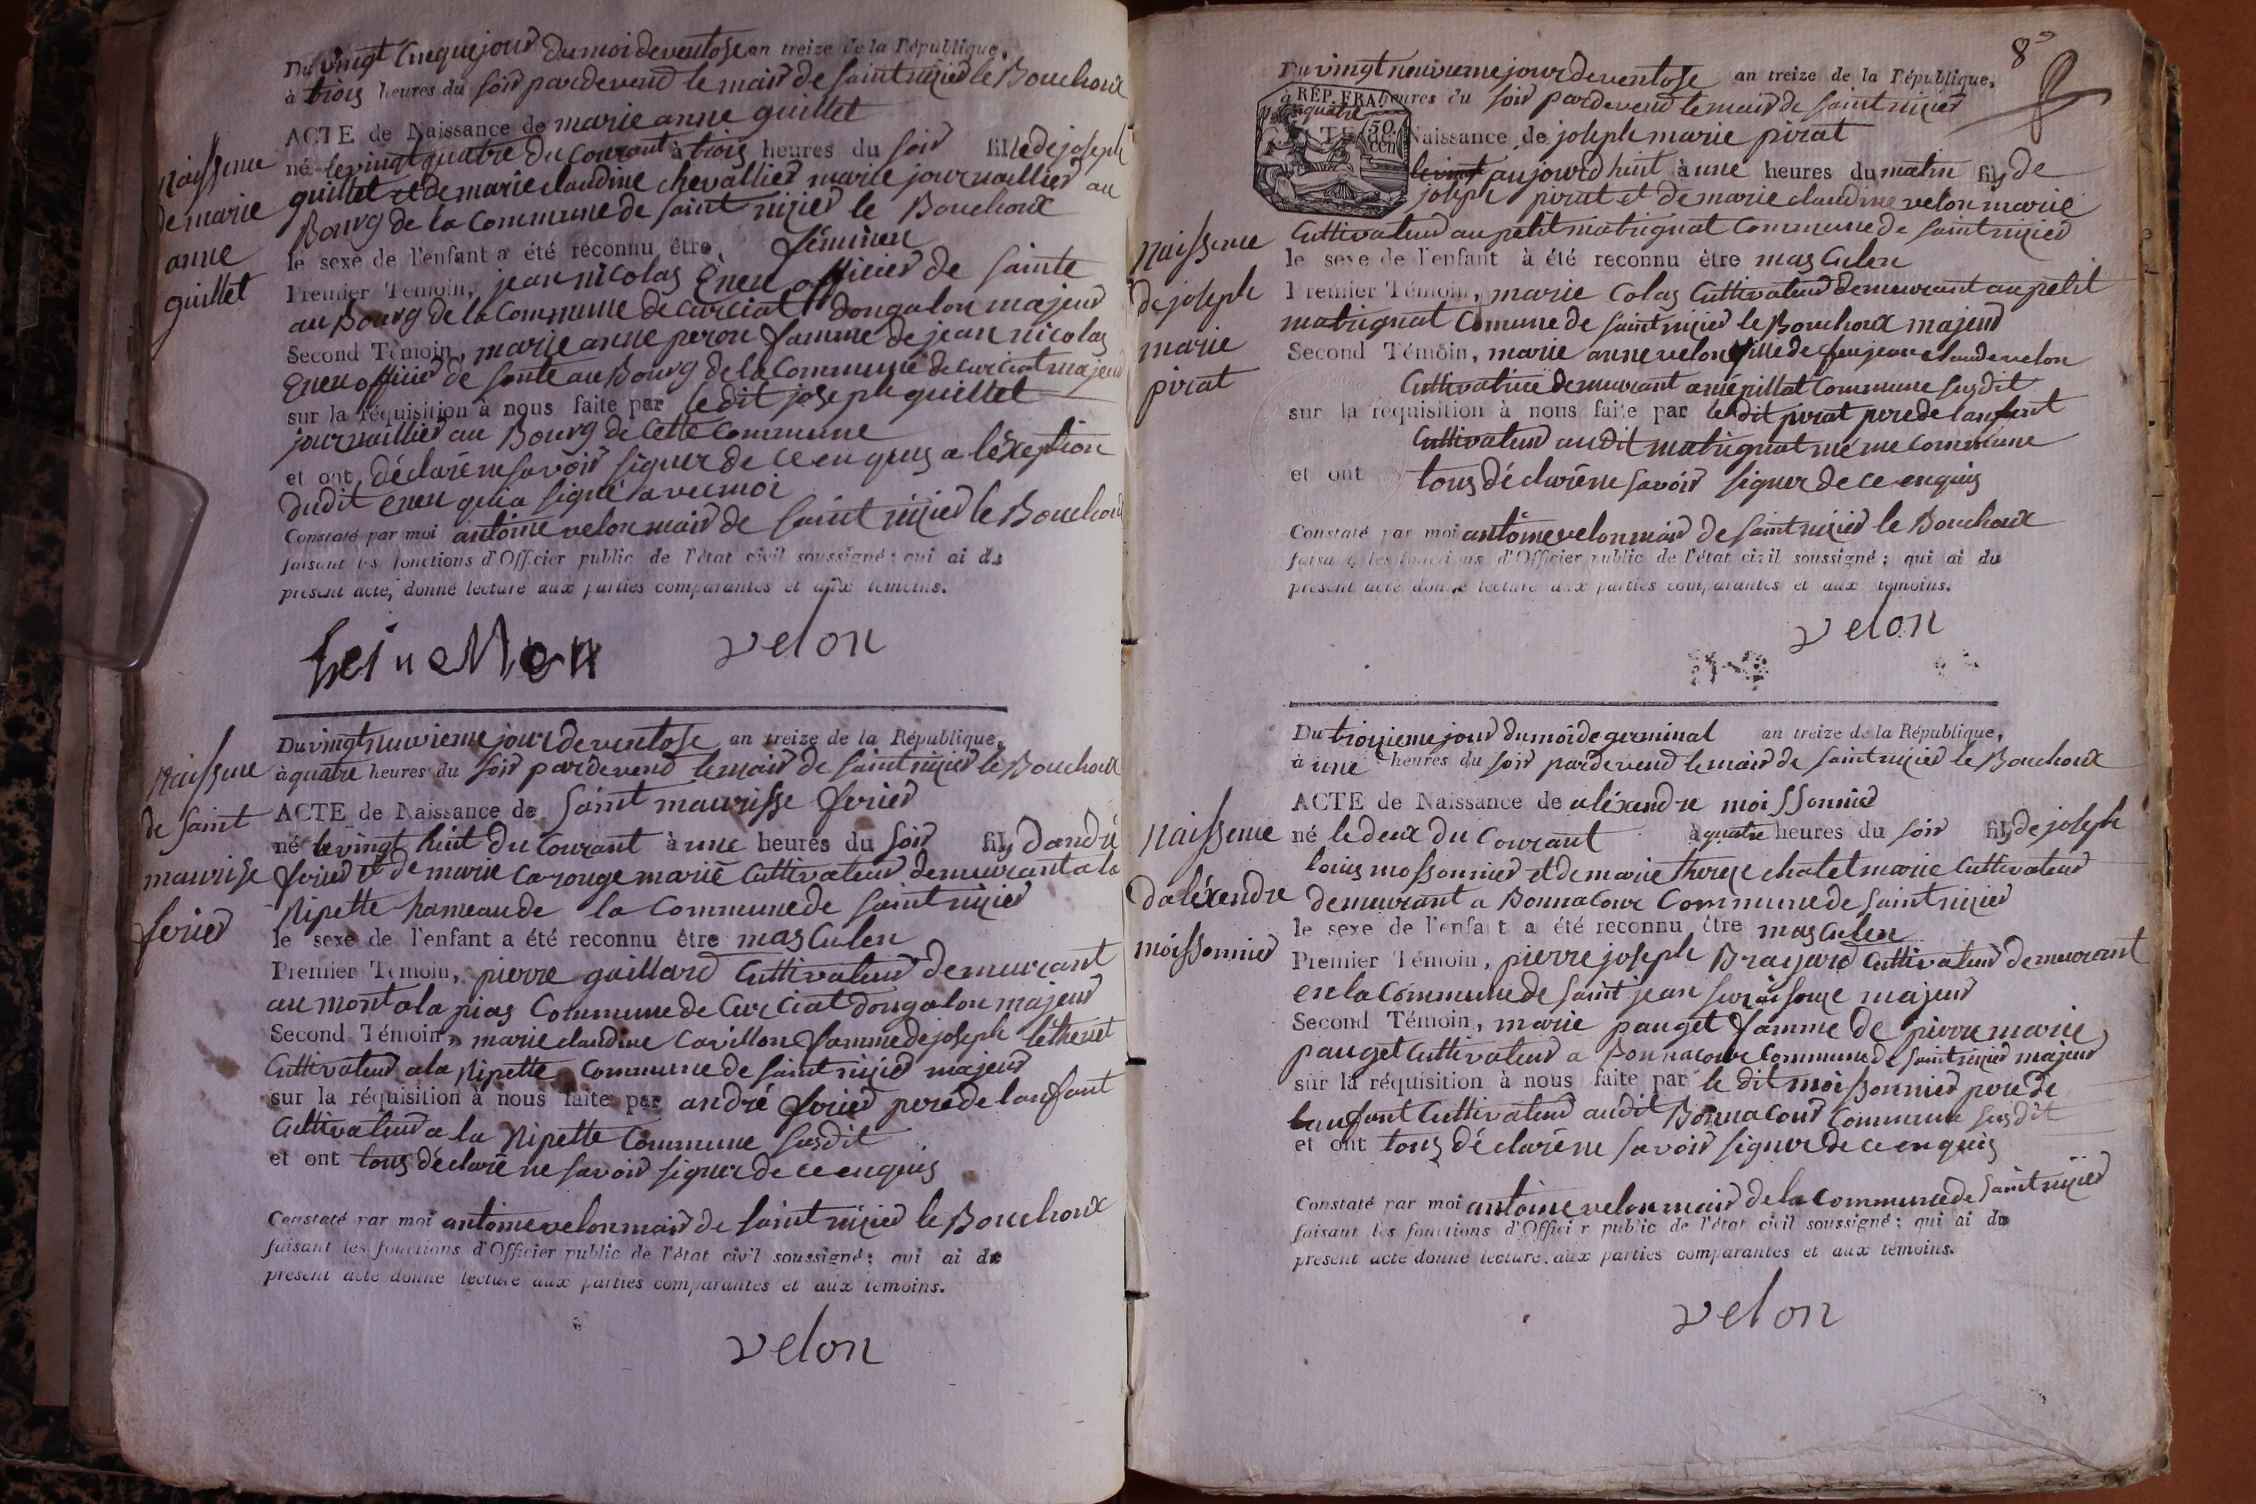 Du vingt Cinque jour du moi de ventose an treize de la République,
à trois heures du soir pardevend le mair de saint nizier le Bouchoux
ACTE de Naissance de marie anne guillet
né le vingt quatre du courant à trois heures du soir fille de joseph
guillet et de marie claudine chevallier marié journaillier au
Bourg de la Commune de saint nizier le Bouchoux
le sexe de l'enfant a été reconnu être féminen
Premier Témoin, jean nicolas Eneu officier de sainte
au Bourg de la Commune de Curciat dongalon majeur
Second Témoin, marie anne peron famme de jean nicolas
Eneu officier de sante au Bourg de la Commune de Curciat majeur
sur la réquisition à nous faite par le dit joseph guillet
journaillier au Bourg de Cette Commune
et ont déclaré ne savoir signer de ce enquis a léxeption
dudit eneu qui a signé avec moi
Constaté par moi antoine velon mair de saint nizier le Bouchoux
faisant les fonctions d'Officier public de l'état civil soussigné; qui ai du
présent acte, donné lecture aux parties comparantes et aux témoins.
velon
Naissence
de marie
anne
guillet
Du vingt neuvieme jour de ventose an treize de la République,
à quatre heures du soir pardevend le mair de saint nizier le Bouchoux
ACTE de Naissance de saint maurisse ferier
né le vingt huit du Courant à une heures du soir fils dandré
ferier et de marie Carouge marié Cultivateur demeurant a la
Ripette hameau de la Commune de saint nizier
le sexe de l'enfant a été reconnu être masculen
Premier Témoin, pierre gaillard Cultivateur demeurant
au mont a la pias Commune de Curciat dongalon majeur
Second Témoin, marie claudine Cavillon famme de joseph lethenet
Cultivateur a la Ripette Commune de saint nizier majeur
sur la réquisition à nous faite par andré ferier pere de lanfant
Cultivateur a la Ripette Commune susdit
et ont tous déclaré ne savoir signer de ce enquis
Constaté par moi antoine velon mair de saint nizier le Bouchoux
faisant les fonctions d'Officier public de l'état civil soussigné; qui ai du
présent acte donné lecture aux parties comparantes et aux témoins.
velon
Naissence
de saint
maurisse
ferier
8
Du vingt neuvieme jour de ventose an treize de la République,
à quatre heures du soir pardevend le mair de saint nizier
RÉP. FRA.
50 cen
Naissance de joseph marie pirat
aujourdhuit à une heures du matin fils de
joseph pirat et de marie claudine velon marié
Cultivateur au petit matrignat Commune de saint nizier
le sexe de l'enfant à été reconnu être masculen
Premier Témoin, marie Colas Cultivateur demeurant au petit
matrignat Comune de saint nizier le Bouchoux majeur
Second Témoin, marie anne velon fille de feu jean claude velon
Cultivatrice demeurant a mépillat Commune susdit
sur la réquisition à nous faite par le dit pirat pere de lanfent
Cultivateur audit matrignat même Commune
et ont tous déclaré ne savoir signer de ce enquis
Constaté par moi antoine velon mair de saint nizier le Bouchoux
faisant les fonctions d'Officier public de l'état civil soussigné; qui ai du
présent acte donné lecture aux parties comparantes et aux témoins.
velon
Naissence
de joseph
marie
pirat
Du troisieme jour du moi de germinal an treize de la République,
à une heures du soir pardevend le mair de saint nizier le Bouchoux
ACTE de Naissance de aléxendre moissonnier
né le deux du Courant à quatre heures du soir fils de joseph
louis mossonnier et de marie therese chatet marié Cultivateur
demeurant a Bonnacour Commune de saint nizier
le sexe de l'enfant a été reconnu être masculen
Premier Témoin, pierre joseph Brayard Cultivateur demeurant
en la Commune de saint jean sur raisouze majeur
Second Témoin, marie pauget famme de pierre marie
pauget Cultivateur a Bonnacour Commune de saint nizier majeur
sur la réquisition à nous faite par le dit moissonnier pere de
lanfant Cultivateur audit Bonnacour Commune susdit
et ont tous déclaré ne savoir signer de ce enquis
Constaté par moi antoine velon mair de la Commune de saint nizier
faisant les fonctions d'Officier public de l'état civil soussigné; qui ai du
présent acte donné lecture aux parties comparantes et aux témoins.
velon
Naissence
daléxendre
moissonnier